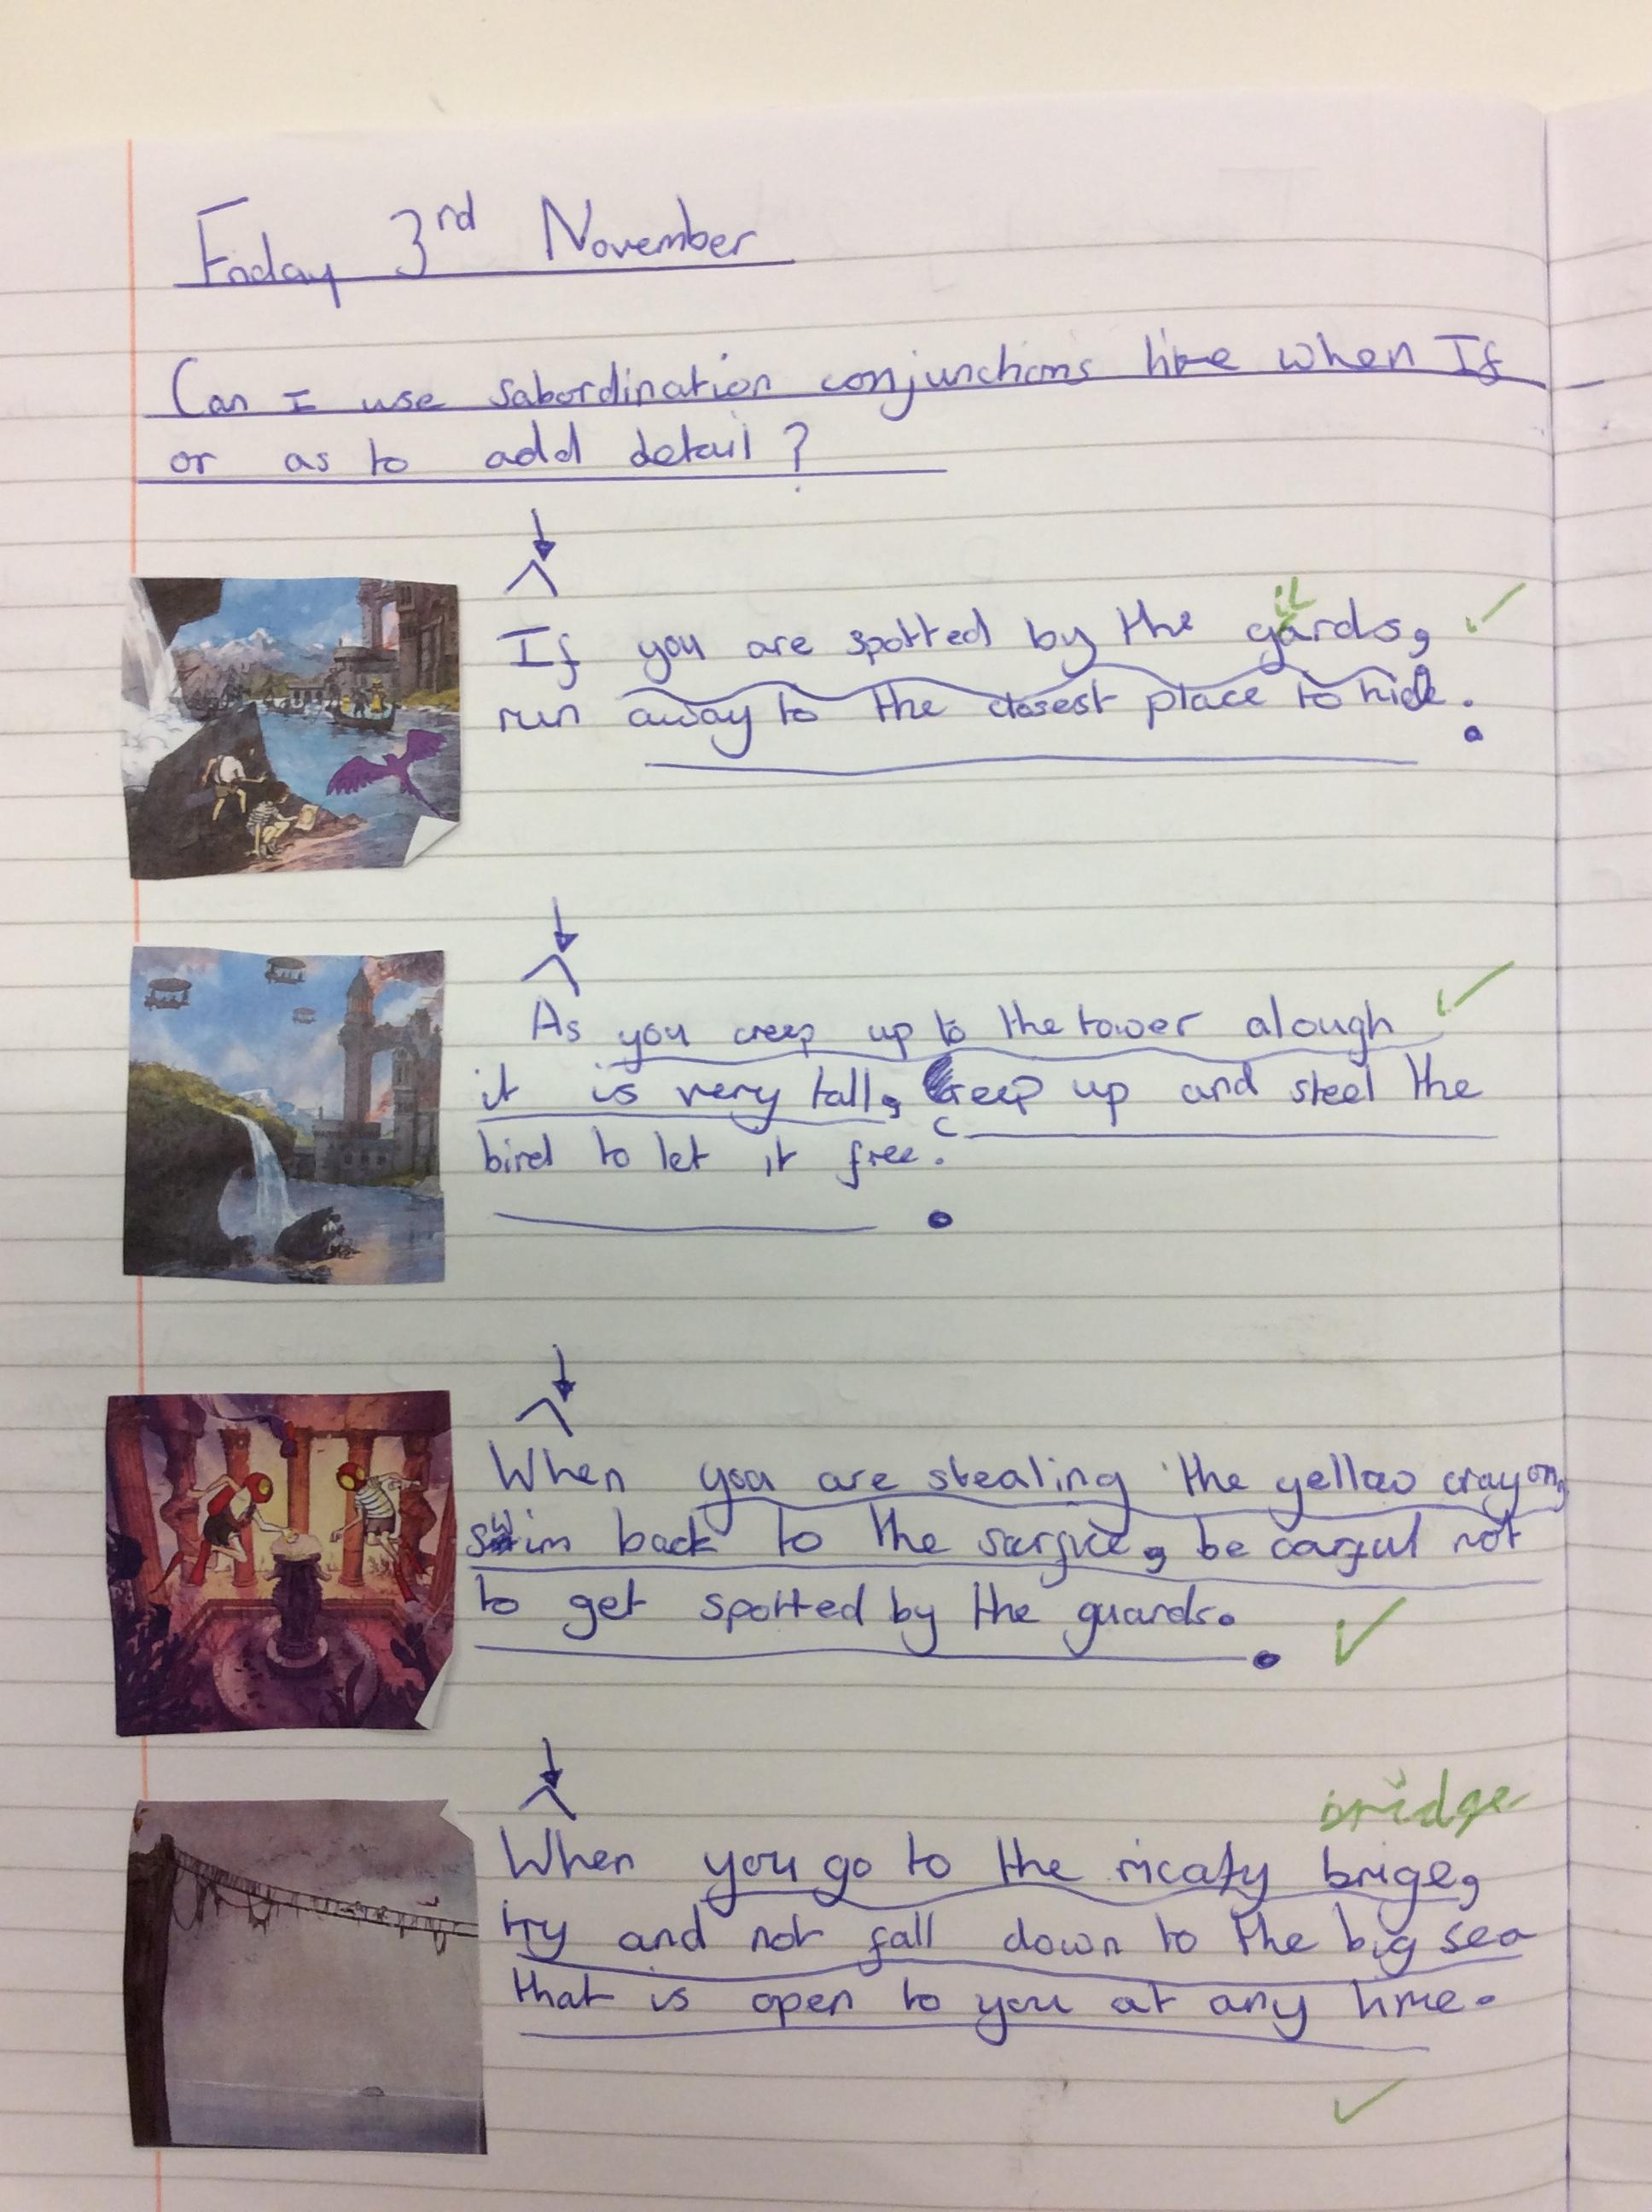 Friday 3rd November
Can I use sabordination conjunctions like when If
or as to add detail?
If you are spotted by the gards,
u
run away to the closest place to hide.
As you creep up to the tower alough
it is very tall, creep up and steel the
c
bird to let it free.
When you are stealing the yellow crayon,
swim back to the surfice, be carful not
to get spotted by the guards.
bridge
When you go to the ricaty brige,
try and not fall down to the big sea
that is open to you at any time.